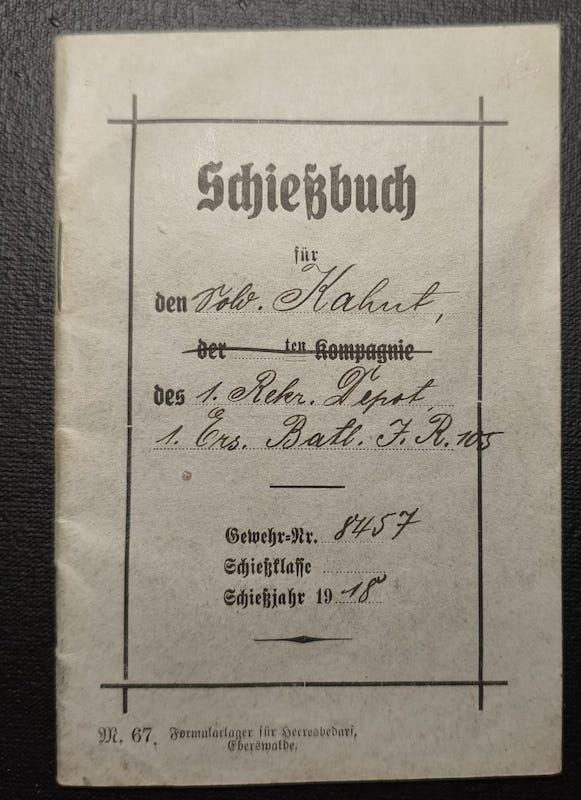 Schießbuch
für
den Sold. Kahnt,
der ten Kompagnie
des 1. Rekr. Depot,
1. Ers. Batl. J. R. 105
Gewehr=Nr. 8457
Schießklasse
Schießjahr 19 18
M. 67. Formularlager für Heeresbedarf,
Eberswalde.